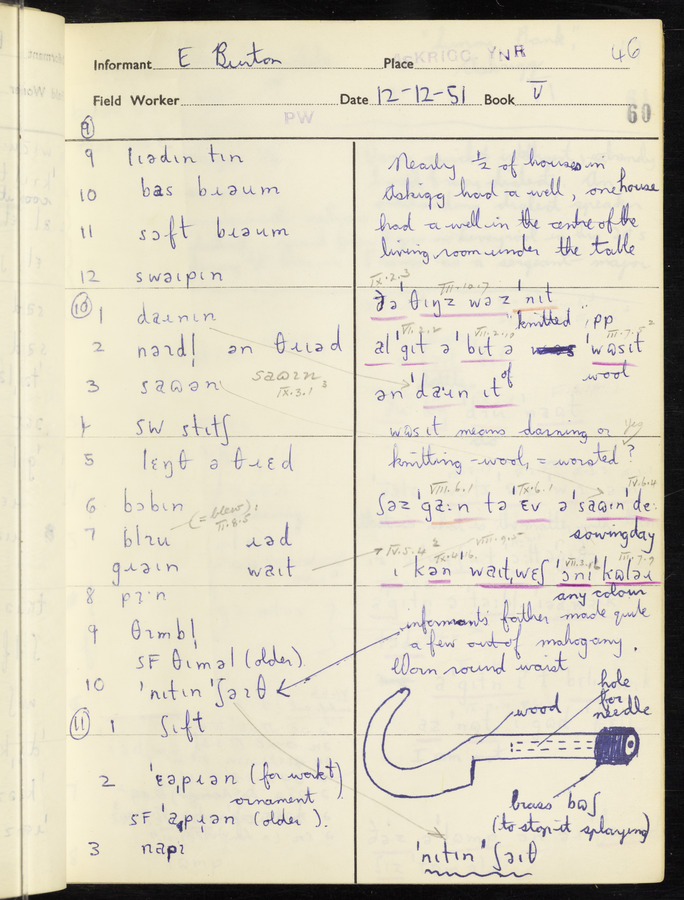 Informant E Burton Place ASKRIGG. YNR 46
Field Worker Date 12-12-51 Book V
PW 60
9
9 lɪədɪn tɪn
10 bas bɪəum
11 sɔft bɪəum
12 swaɪpɪn
10 1 daɪnɪn
2 nərdl ən θɪɪəd
3 səɷən IX.3.1
4 sw stɪtʃ
5 lɛŋθ ə θɪɛd
6 bɔbɪn
7 blɪu (= blew): II.8.5 ɪəd
gɪəin wait
8 pɪ:n
9 θɪmbl
SF θɪməl (older)
10 ˈnɪtɪn ˈʃəɪθ
11 1 ʃɪft
2 ˈɛəˌpɪən (for work)
ornament
SF ˈapˌɪən (older).
3 napɪ
Nearly ½ of houses in
Askrigg had a well, one house
had a well in the centre of the
living room under the table
IX.2.3 VII.10.7
ðəˈθɪŋz wəz ˈnɪt
"knitted" pp
VII.2.10 VII.7.5
al ˈgɪt ə ˈbɪt ə ˈwɷsɪt
of wool
ən ˈda:ɪn ɪt
wɷsɪt means darning or
knitting-wool, = worsted? yes
VIII.6.1 IX.6.1 IV.6.4
ʃəz ˈga:ɪn tə ˈɛv ə ˈsaɷɪn ˈde:
sowing day
IV.5.4 VIII.9.5 VII.7.9
ɪ kən waɪtˌwɛʃ ˈɔnɪ ˈkɷləɪ
any colour
informants father made quite
a few out of mahogany.
Worn round waist
hole
for
needle
wood
brass bɷʃ
(to stop it splaying)
ˈnɪtɪn ˈʃəɪθ